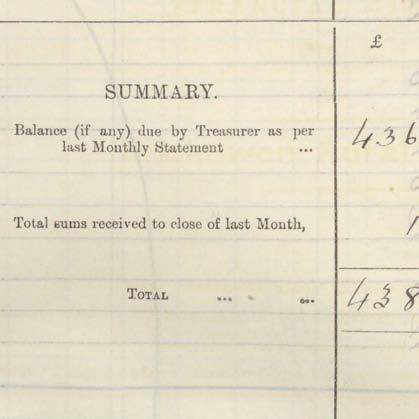 £
SUMMARY.
Balance (if any) due by Treasurer as per 436
last Monthly Statement ...
Total sums received to close of last Month, 1
TOTAL ... ... 438